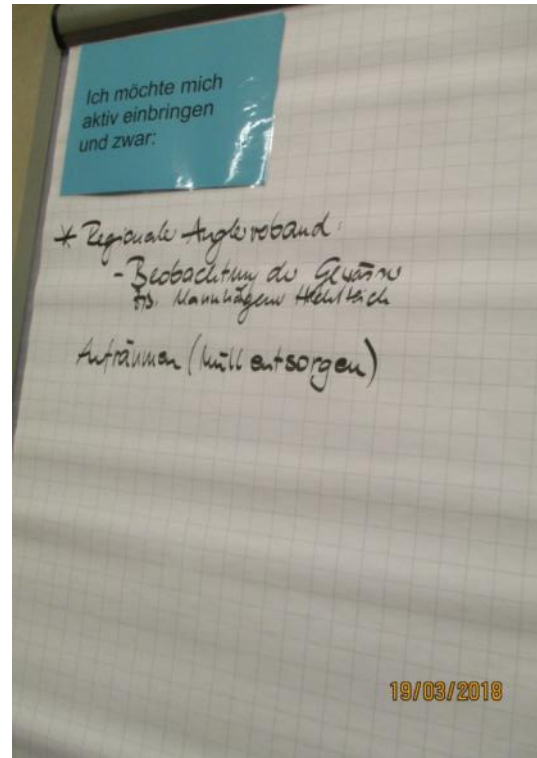 Ich möchte mich
aktiv einbringen
und zwar:
* Regionale Anglerverband:
- Beobachtung der Gewässer
Mannhagener
Aufräumen (Müll entsorgen)
19/03/2018